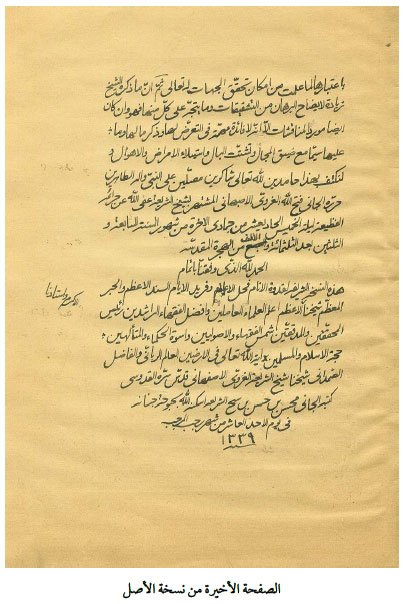 باعتبارها لما علمت من امكان تحقق الجهات له تعالى ثم ان ما ذكره الشيخ
زيادة لايضاح البرهان من التشقيقات وما يتجه على كل منها فهو ان كان
ايضا مورد المناقشات الا انه لا فائدة مهمة فى التعرض لها وذكر ما لها وما
عليها سيما مع ضيق المجال وتشتت البال واستيلاء الامراض والاهوال و
لنكتف بهذا حامدين لله تعالى شاكرين مصلين على النبى وآله الطاهرين
حرره الجانى فتح الله الغروى الاصبهانى المشتهر بشيخ الشريعة عفى الله عن جرائمه
العظيمة ليلة الخميس الحادية عشر من جمادى الاخرة من شهور السنة السابعة و
الثلثين بعد الثلثمائة والالف من الهجرة المقدسة
الحمد لله الذى وفقنا باتمام
هذه النسخة الشريفة لقدوة الانام وفريد الايام السند الاعظم والحبر
المعظم شيخنا الاعظم اعلم العلماء العاملين وافضل الفقهاء الراشدين رئيس
المحققين والمدققين شمس الفقهاء والاصوليين واسوة الحكماء والمتألهين
حجة الاسلام والمسلمين آية الله تعالى فى الارضين العالم الربانى والفاضل
الصمدانى شيخنا شيخ الشريعة الغروى الاصفهانى قدس سره القدوسى
كتبه الجانى محسن بن حسن بن الشريعة اسكنه الله بحبوحة جنانه
فى يوم الاحد العاشر من شهر رجب المرجب
١٣٣٩
الصفحة الأخيرة من نسخة الأصل